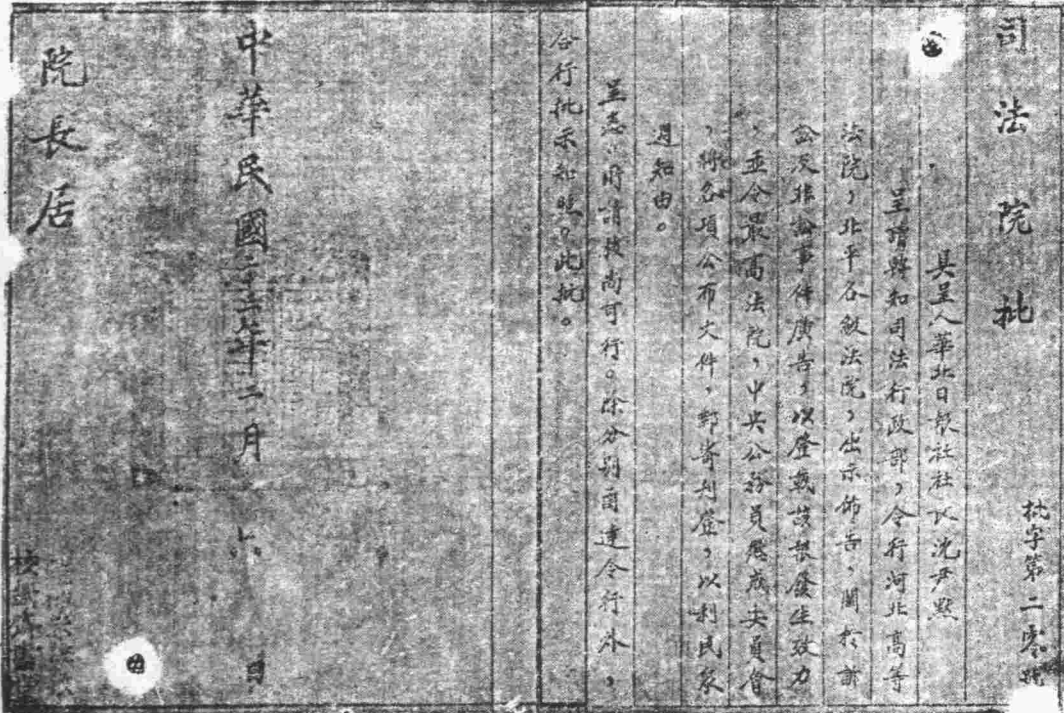 司法院批
批字第二零號
具呈人華北日報社社長沈尹默
呈請轉知司法行政部，令行河北高等
法院，北平各級法院，出示佈告，關於訴
訟及非訟事件廣告，以登載該報發生效力
，並令最高法院，中央公務員懲戒委員會
，將各項公布文件，郵寄刊登，以利民眾
週知由。
呈悉。所請核尚可行。除分別函達令行外，
合行批示知照。此批。
中華民國二十 年二月 六 日
院長居